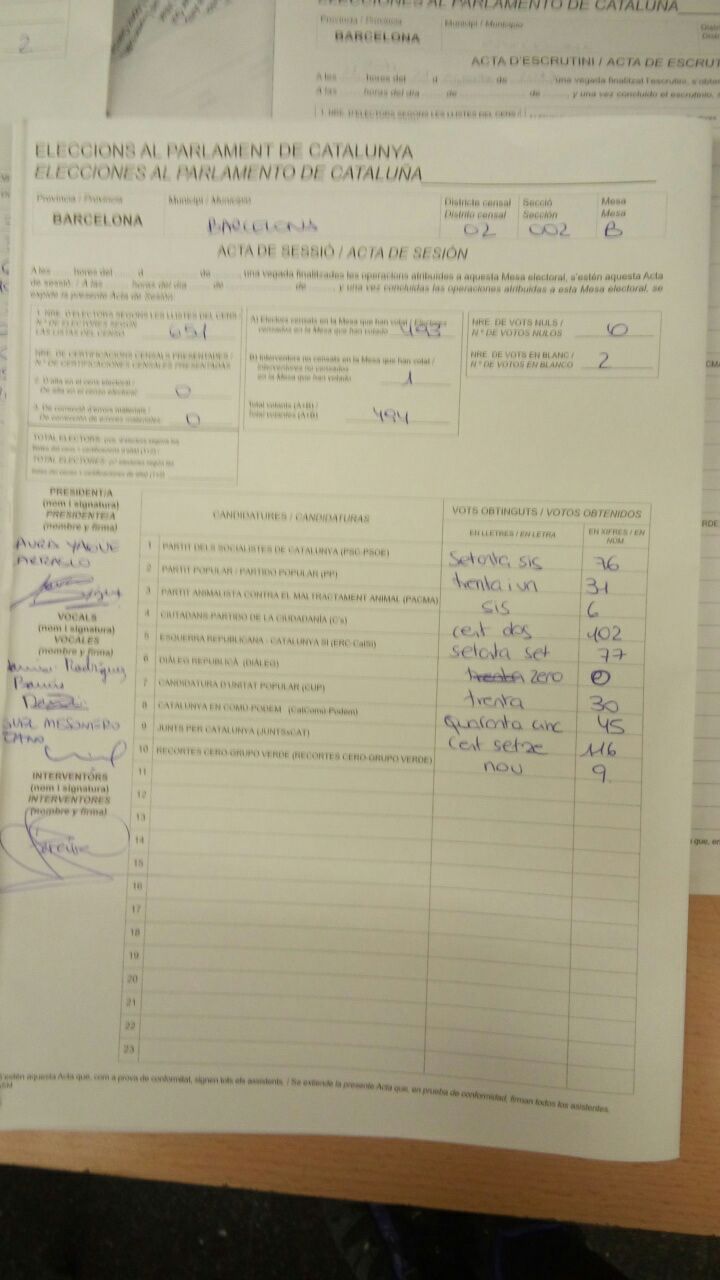 2
ELECCIONES AL PARLAMENTO DE CATALUÑA
Província / Provincia Municipi / Municipio
BARCELONA
ACTA D'ESCRUTINI / ACTA DE ESCRUT
ELECCIONS AL PARLAMENT DE CATALUNYA
ELECCIONES AL PARLAMENTO DE CATALUÑA
Província / Provincia Municipi / Municipio Districte censal Secció Mesa
Distrito censal Sección Mesa
BARCELONA BARCELONA 02 002 B
ACTA DE SESSIÓ / ACTA DE SESIÓN
A les hores del d de , una vegada finalitzades les operacions atribuïdes a aquesta Mesa electoral, s'estén aquesta Acta
de sessió. / A las horas del día de de , y una vez concluidas las operaciones atribuidas a esta Mesa electoral, se
expide la presente Acta de Sesión.
1. NRE. D'ELECTORS SEGONS LES LLISTES DEL CENS /
N.º DE ELECTORES SEGÚN
LAS LISTAS DEL CENSO 651
NRE. DE CERTIFICACIONS CENSALS PRESENTADES /
N.º DE CERTIFICACIONES CENSALES PRESENTADAS
2. D'alta en el cens electoral /
De alta en el censo electoral 0
3. De correcció d'errors materials /
De corrección de errores materiales 0
A) Electors censats en la Mesa que han votat / Electores
censados en la Mesa que han votado 493
B) Interventors no censats en la Mesa que han votat /
Interventores no censados
en la Mesa que han votado 1
Total votants (A+B) /
Total votantes (A+B) 494
NRE. DE VOTS NULS /
N.º DE VOTOS NULOS 0
NRE. DE VOTS EN BLANC /
N.º DE VOTOS EN BLANCO 2
PRESIDENT/A
(nom i signatura)
PRESIDENTE/A
(nombre y firma)
VOCALS
(nom i signatura)
VOCALES
(nombre y firma)
Rodríguez
MESONERO
INTERVENTORS
(nom i signatura)
INTERVENTORES
(nombre y firma)
CANDIDATURES / CANDIDATURAS VOTS OBTINGUTS / VOTOS OBTENIDOS
EN LLETRES / EN LETRA EN XIFRES / EN NÚM.
1 PARTIT DELS SOCIALISTES DE CATALUNYA (PSC-PSOE) Setanta sis 76
2 PARTIT POPULAR / PARTIDO POPULAR (PP) trenta i un 31
3 PARTIT ANIMALISTA CONTRA EL MALTRACTAMENT ANIMAL (PACMA) sis 6
4 CIUTADANS-PARTIDO DE LA CIUDADANÍA (C's) cent dos 102
5 ESQUERRA REPUBLICANA - CATALUNYA SÍ (ERC-CatSí) setanta set 77
6 DIÀLEG REPUBLICÀ (DIÀLEG) trenta zero 0
7 CANDIDATURA D'UNITAT POPULAR (CUP) trenta 30
8 CATALUNYA EN COMÚ-PODEM (CatComú-Podem) quaranta cinc 45
9 JUNTS PER CATALUNYA (JUNTSxCAT) Cent setze 116
10 RECORTES CERO-GRUPO VERDE (RECORTES CERO-GRUPO VERDE) nou 9
11
12
13
14
15
16
17
18
19
20
21
22
23
S'estén aquesta Acta que, com a prova de conformitat, signen tots els assistents. / Se extiende la presente Acta que, en prueba de conformidad, firman todos los asistentes.